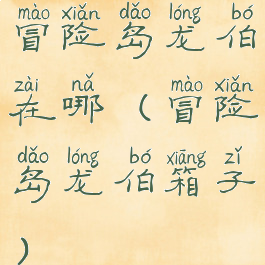 mào xiǎn dǎo lóng bó
冒险岛龙伯
zài nǎ mào xiǎn
在哪（冒险
dǎo lóng bó xiāng zǐ
岛龙伯箱子
）